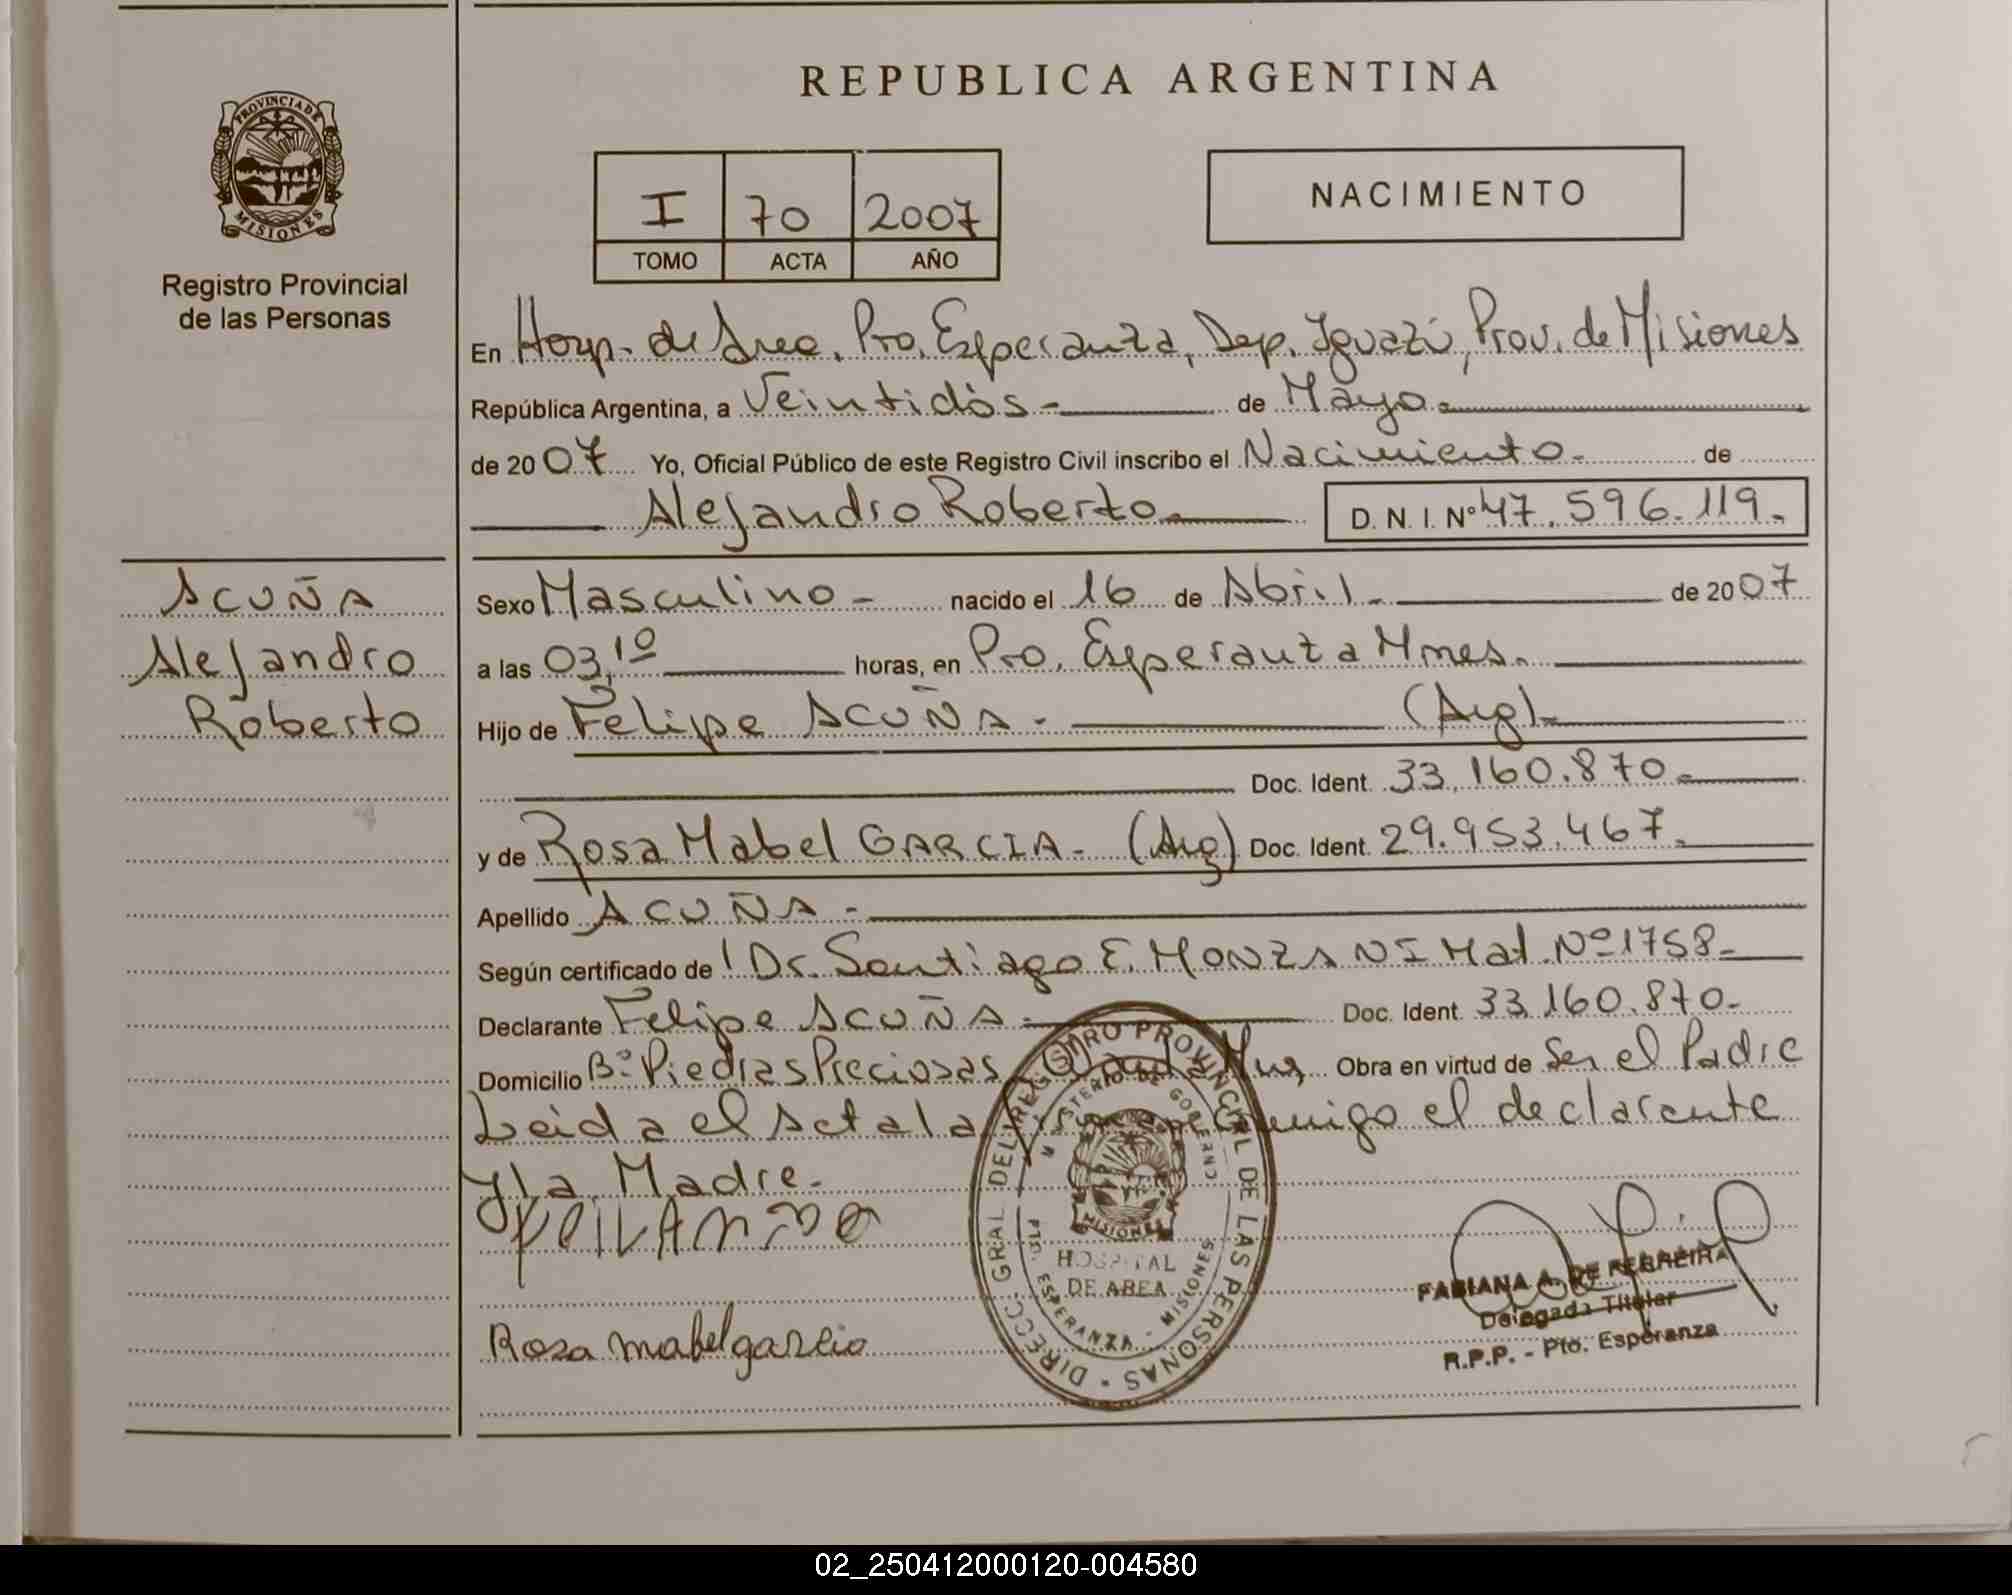 REPUBLICA ARGENTINA
PROVINCIA DE MISIONES
Registro Provincial
de las Personas
I 70 2007
TOMO ACTA AÑO
NACIMIENTO
En Hosp. de Area, Pto. Esperanza, Dep. Iguazú, Prov. de Misiones
República Argentina, a Veintidós - de Mayo.
de 2007 Yo, Oficial Público de este Registro Civil inscribo el Nacimiento. de
Alejandro Roberto D.N.I. Nº 47.596.119.-
ACUÑA
Alejandro
Roberto
Sexo Masculino - nacido el 16 de Abril - de 2007
a las 03,10 horas, en Pto. Esperanza Mnes.
Hijo de Felipe ACUÑA - (Arg)-
Doc. Ident. 33.160.870.-
y de Rosa Mabel GARCIA - (Arg) Doc. Ident. 29.953.467.-
Apellido ACUÑA -
Según certificado de Dr. Santiago E. MONZANI Mat. Nº 1758-
Declarante Felipe ACUÑA - Doc. Ident. 33.160.870-
Domicilio Bº Piedras Preciosas, Obra en virtud de Ser el Padre
Leida el Acta la el declarante
y la Madre.-
Rosa mabel garcia
DIRECC. GRAL. DEL REGISTRO PROVINCIAL DE LAS PERSONAS
MINISTERIO DE GOBIERNO
MISIONES
HOSPITAL
DE AREA
PTO. ESPERANZA - MISIONES
FABIANA A. DE FERREIRA
Delegada Titular
R.P.P. - Pto. Esperanza
02_250412000120-004580